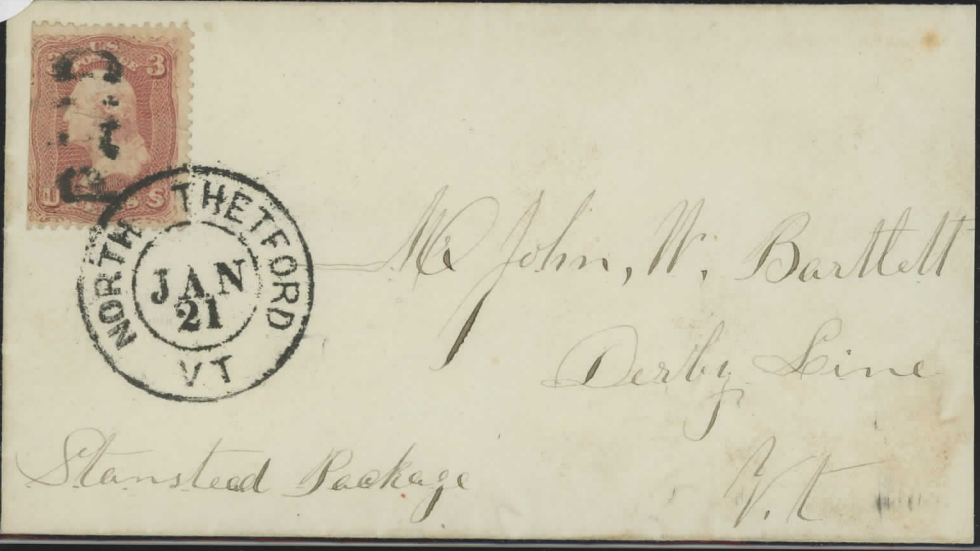 U S
3
U S
NORTH THETFORD
JAN
21
VT
Mr John, W. Bartlett
Derby Line
V.t
Stanstead Package